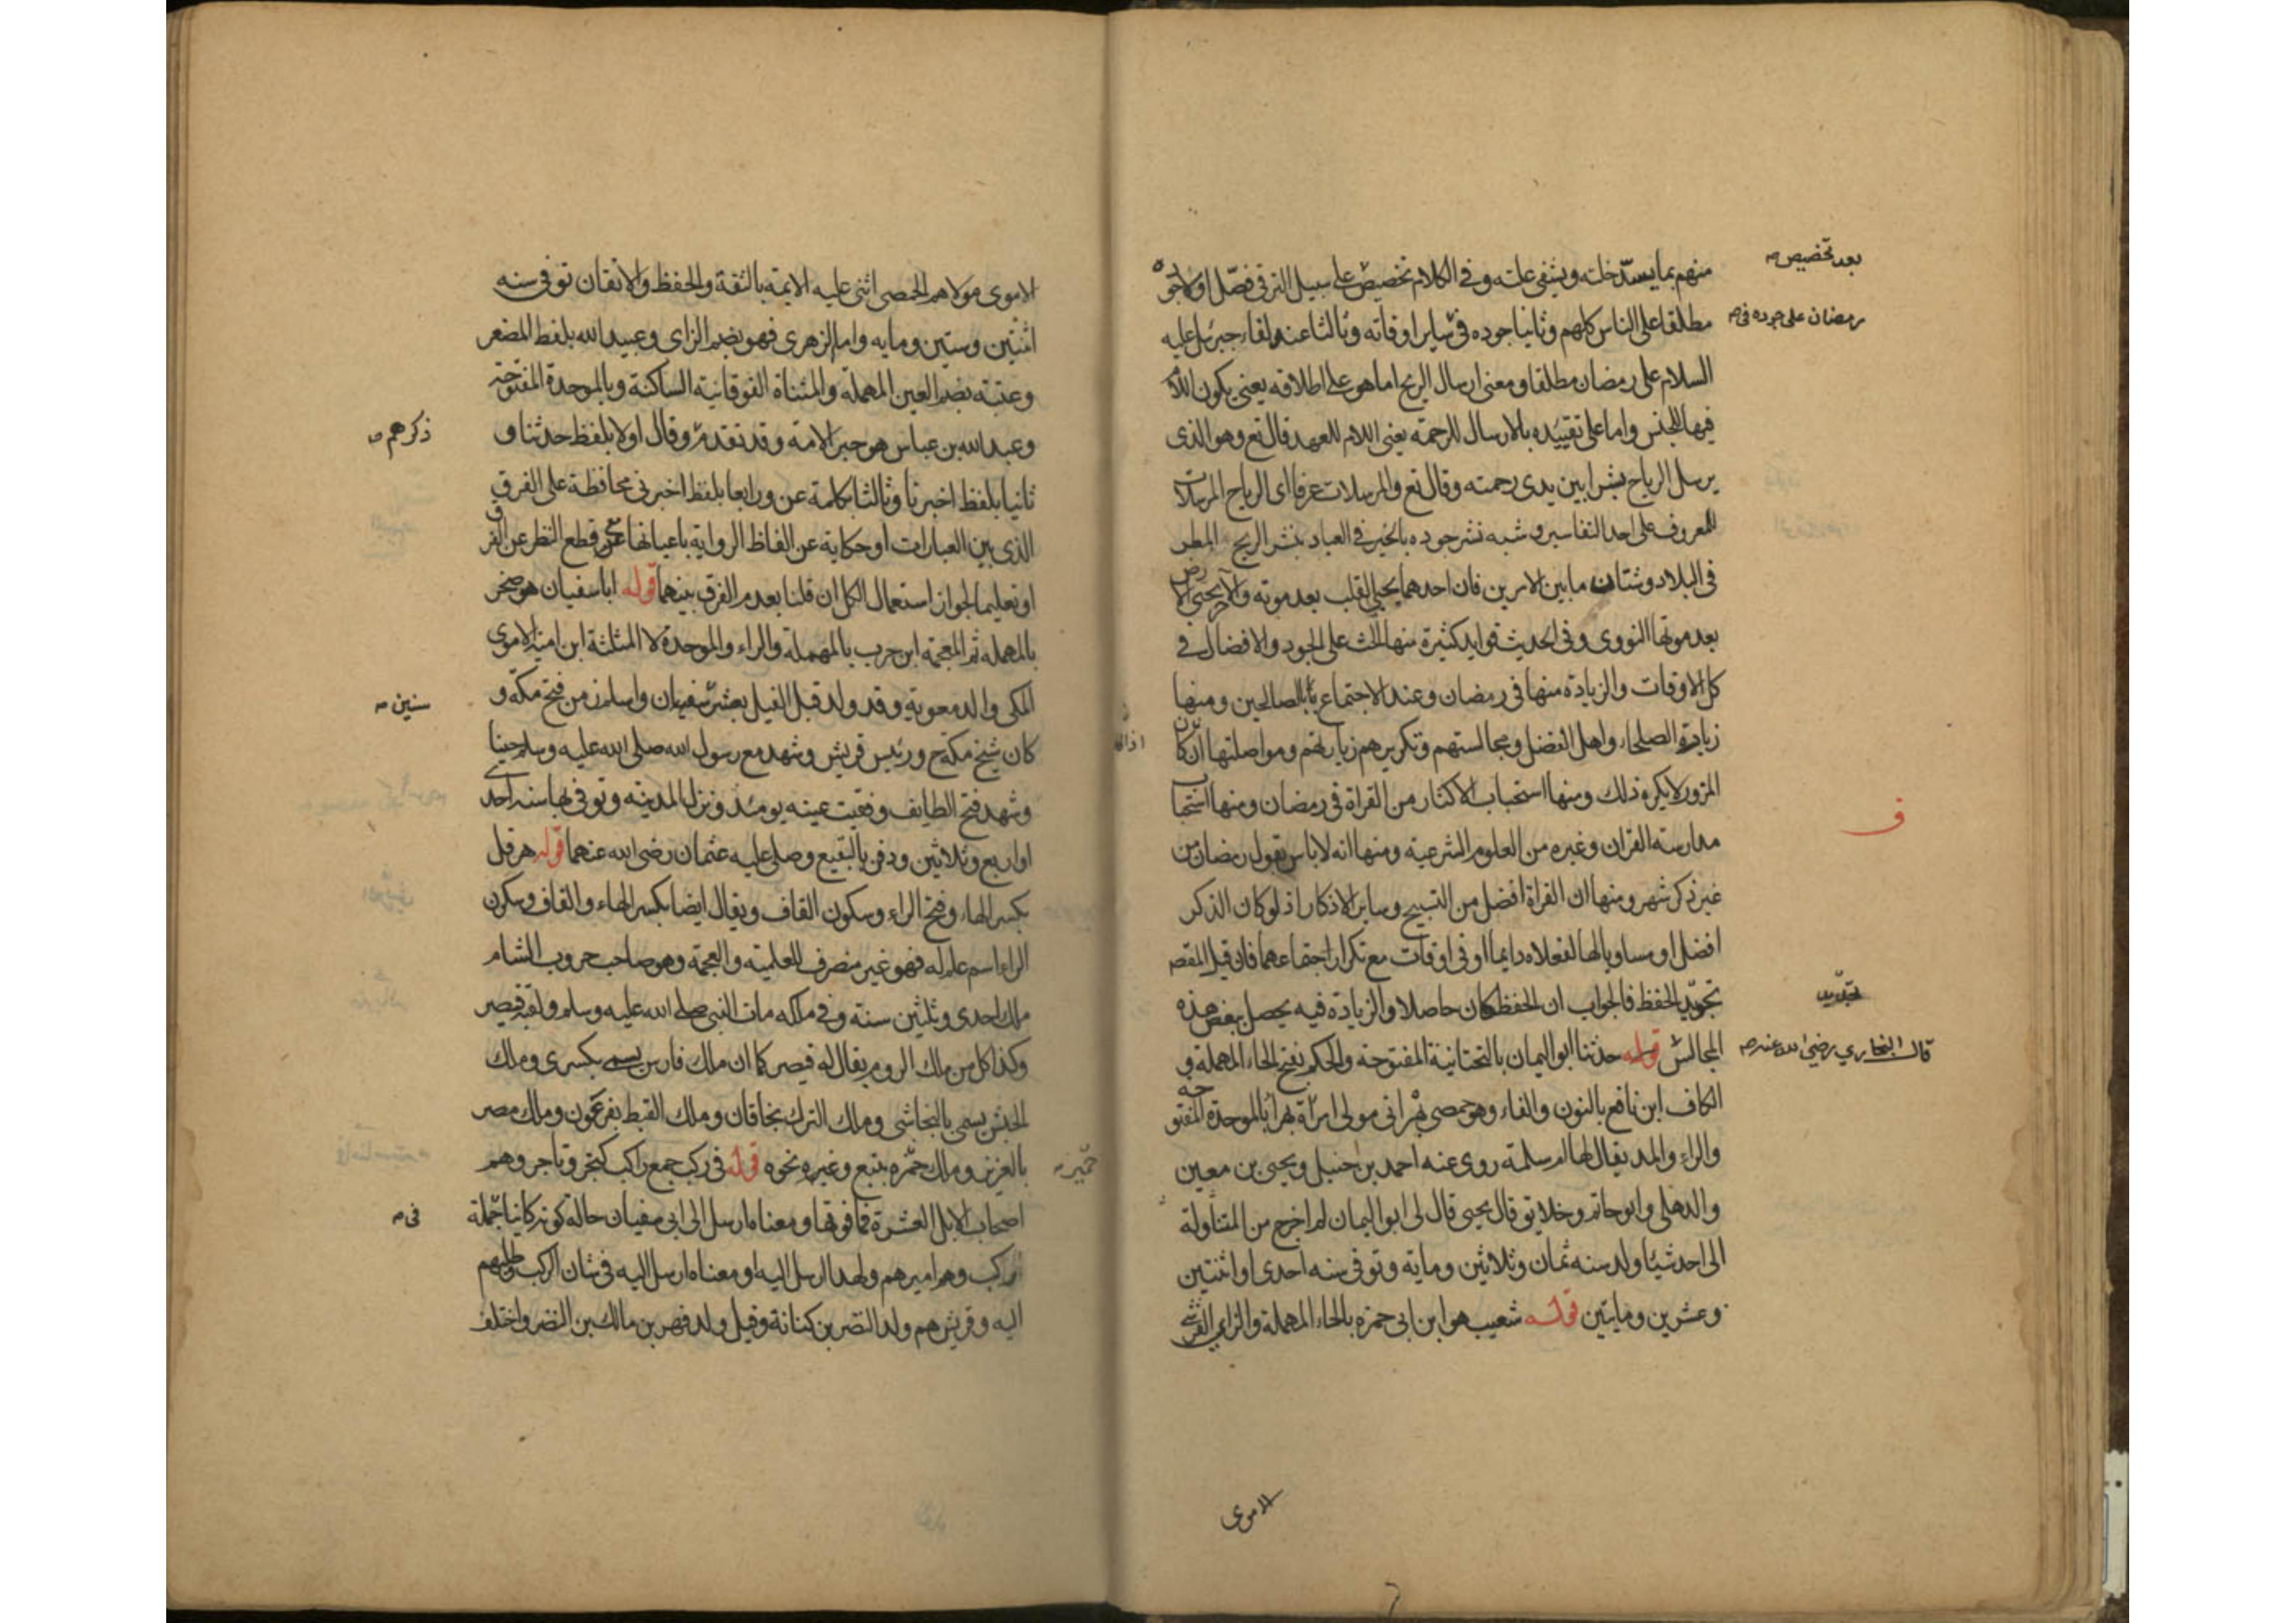 منهم بما يسدّ خلته ويشفي علته وفي الكلام تخصيص على سبيل الترقي فضّل اولا جوده
مطلقا على الناس كلهم وثانيا جوده في ساير اوقاته وثالثا عند لقاء جبرئل عليه
السلام على رمضان مطلقا ومعنى ارسال الريح اما هو على اطلاقه يعني يكون اللام
فيها للجنس واما على تقييده بالارسال للرحمة يعني اللام للعهد قال تع وهو الذي
يرسل الرياح بشرا بين يدى رحمته وقال تع والمرسلات عرفا اى الرياح المرسلات
للمعروف على احد التفاسير وشبه نشر جوده بالخير في العباد بنشر الريح المطر
في البلاد وشتان ما بين الامرين فان احدهما يحيي القلب بعد موته والآخر يحيي الارض
بعد موتها النووى وفي الحديث فوايد كثيرة منها الحث على الجود والافضال في
كل الاوقات والزيادة منها في رمضان وعند الاجتماع بالصالحين ومنها
زيارة الصلحاء واهل الفضل ومجالستهم وتكريرهم زيارتهم ومواصلتها اذا كان
المزور لا يكره ذلك ومنها استحباب الاكثار من القراة في رمضان ومنها استحباب
مدارسة القران وغيره من العلوم الشرعية ومنها انه لا باس بقول رمضان من
غير ذكر شهر ومنها ان القراة افضل من التسبيح وساير الاذكار اذ لو كان الذكر
افضل او مساويا لها لفعلاه دايما او في اوقات مع تكرار اجتماعهما فان قيل المقصد
تجويد الحفظ فالجواب ان الحفظ كان حاصلا والزيادة فيه يحصل ببعض هذه
المجالس قوله حدثنا ابو اليمان بالتحتانية المفتوحة والحكم بفتح الحاء المهملة و
الكاف ابن نافع بالنون والفاء وهو حمصي بهراني مولى امرأة بهرا بالموحدة المفتوحة
والراء والمد يقال لها ام سلمة روى عنه احمد بن حنبل ويحيى بن معين
والذهلي وابو حاتم وخلايق قال يحيى قال لي ابو اليمان لم اخرج من المناولة
الى احد شيئا ولد سنه ثمان وثلاثين وماية وتوفي سنه احدى او اثنتين
وعشرين ومايتين قوله شعيب هو ابن ابي حمزه بالحاء المهملة والزاي القرشي
الاموى
بعد تخصيص صـ
رمضان على جوده في صـ
ف
قال البخاري رضي الله عنه صـ
الاموى مولاهم الحمصى اثنى عليه الايمة بالثقة والحفظ والاتقان توفي سنه
اثنتين وستين ومايه واما الزهرى فهو بضم الزاى وعبيد الله بلفظ المصغر
وعتبة بضم العين المهملة والمثناة الفوقانية الساكنة وبالموحدة المفتوحة
وعبد الله بن عباس هو حبر الامة وقد تقدم وقال اولا بلفظ حدثنا و
ثانيا بلفظ اخبرنا وثالثا بكلمة عن ورابعا بلفظ اخبرني محافظة على الفرق
الذى بين العبارات او حكاية عن الفاظ الرواية باعيانها مع قطع النظر عن الفرق
او تعليما لجواز استعمال الكل ان قلنا بعدم الفرق بينهما قوله ابا سفيان هو صخر
بالمهملة ثم المعجمة ابن حرب بالمهملة والراء والموحدة لا المثلثة ابن امية الاموى
المكى والد معوية وقد ولد قبل الفيل بعشر سنين واسلم زمن فتح مكة و
كان شيخ مكة ورئيس قريش وشهد مع رسول الله صلى الله عليه وسلم حنينا
وشهد فتح الطايف وفقيت عينه يومئذ ونزل المدينه وتوفي بها سنه احدى
او اربع وثلاثين ودفن بالبقيع وصلى عليه عثمان رضي الله عنهما قوله هرقل
بكسر الهاء وفتح الراء وسكون القاف ويقال ايضا بكسر الهاء والقاف وسكون
الراء اسم علم له فهو غير منصرف للعلمية والعجمة وهو صاحب حروب الشام
ملك احدى وثلثين سنة وفي ملكه مات النبي صلى الله عليه وسلم ولقبه قيصر
وكذا كل من ملك الروم يقال له قيصر كما ان ملك فارس يسمى بكسرى وملك
الحبش يسمى بالنجاشى وملك الترك بخاقان وملك القبط بفرعون وملك مصر
بالعزيز وملك حمير بتبع وغيره نحوه قوله في ركب جمع راكب كتجر وتاجر وهم
اصحاب الابل العشرة فما فوقها ومعناه ارسل الى ابي سفيان حالة كونه كاينا جملة
ركب وهو اميرهم ولهذا ارسل اليه او معناه ارسل اليه في شان الركب وطلبهم
اليه وقريش هم ولد النضر بن كنانة وقيل ولد فهر بن مالك بن النضر واختلف
ذكرهم صـ
سنين صـ
حمير صـ
في صـ